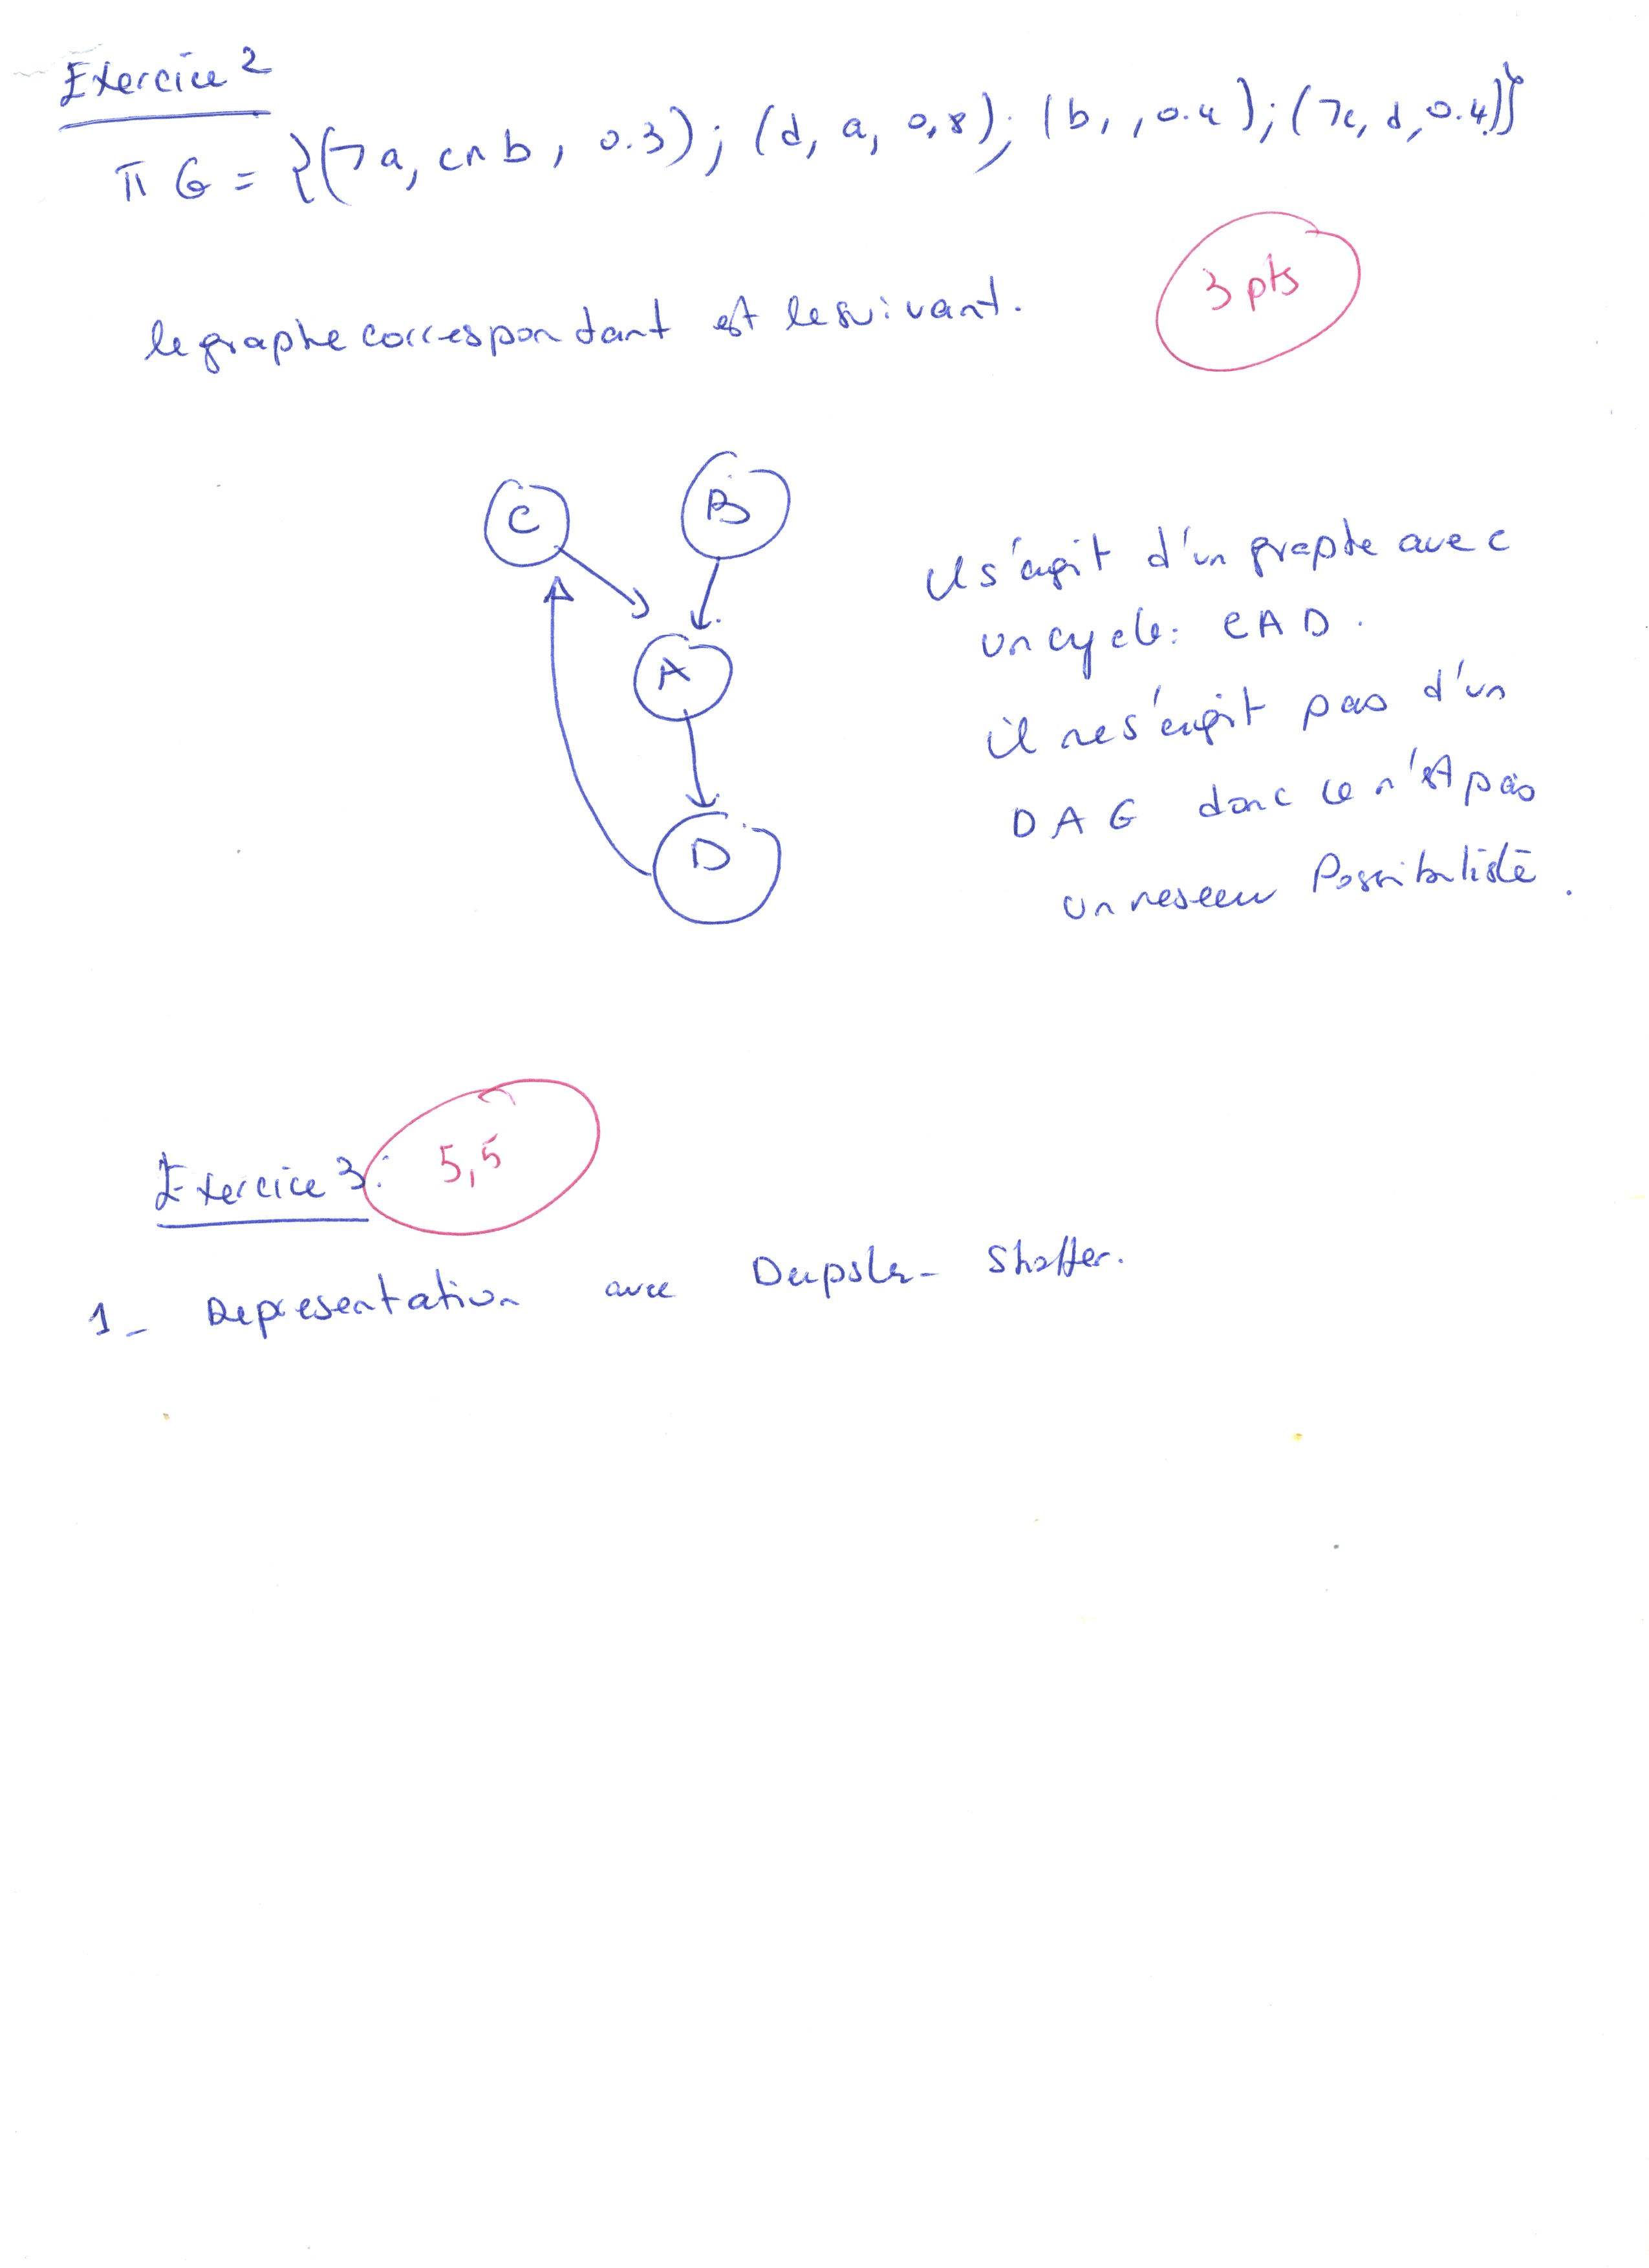 Exercice 2
π G = {(¬a, c∧b, 0.3); (d, a, 0,8); (b, , 0.4); (¬c, d, 0.4)}
3 pts
le graphe correspondant est le suivant.
C
B
A
D
Il s'agit d'un graphe avec
un cycle: CAD.
il ne s'agit pas d'un
DAG donc ce n'est pas
un reseau Possibiliste.
Exercice 3:
5,5
1- Representation avec Dempster-Shaffer.